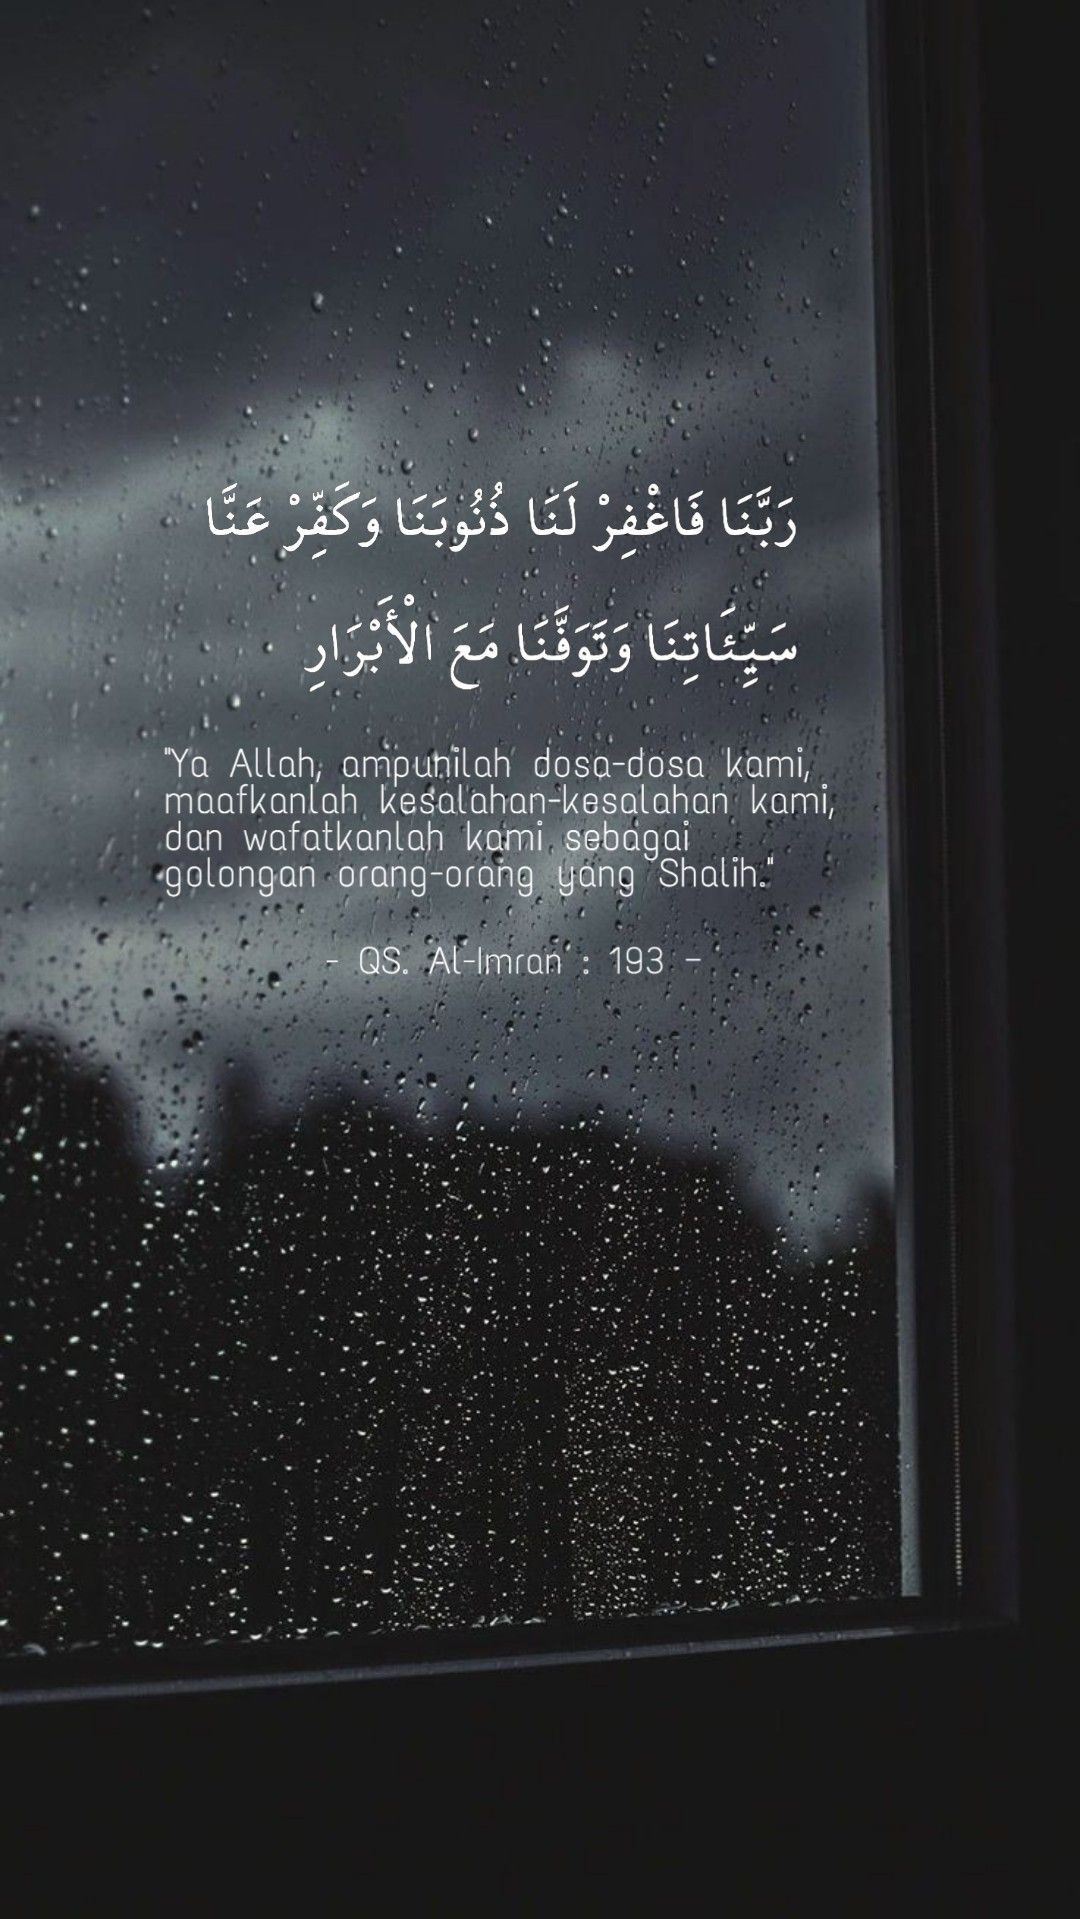 رَبَّنَا فَاغْفِرْ لَنَا ذُنُوبَنَا وَكَفِّرْ عَنَّا
سَيِّئَاتِنَا وَتَوَفَّنَا مَعَ الْأَبْرَارِ
"Ya Allah, ampunilah dosa-dosa kami,
maafkanlah kesalahan-kesalahan kami,
dan wafatkanlah kami sebagai
golongan orang-orang yang Shalih."
- QS. Al-Imran : 193 -